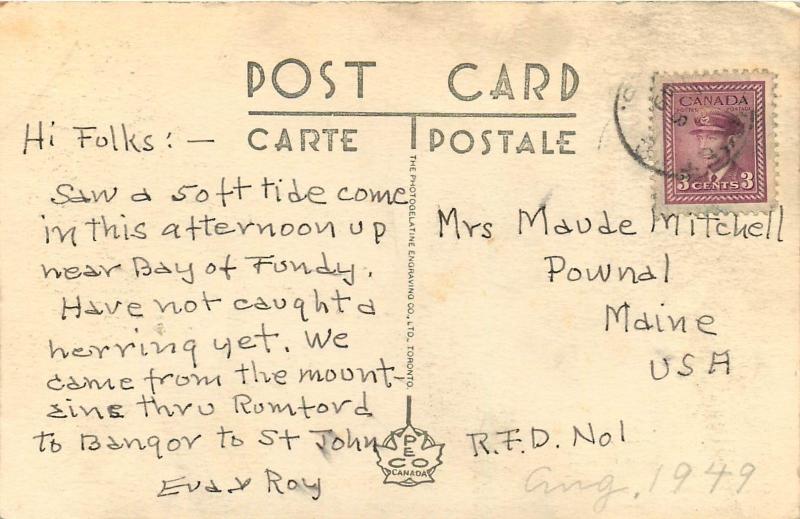 POST CARD
CARTE POSTALE
CANADA
POSTES POSTAGE
3 CENTS 3
Hi Folks: —
Saw a 50 ft tide come
in this afternoon up
near Bay of Fundy.
Have not caught a
herring yet. We
came from the mount-
ains thru Rumford
to Bangor to St John
Eva & Roy
THE PHOTOGELATINE ENGRAVING CO., LTD., TORONTO.
PECO
CANADA
Mrs Maude Mitchell
Pownal
Maine
USA
R.F.D. No 1
Aug, 1949